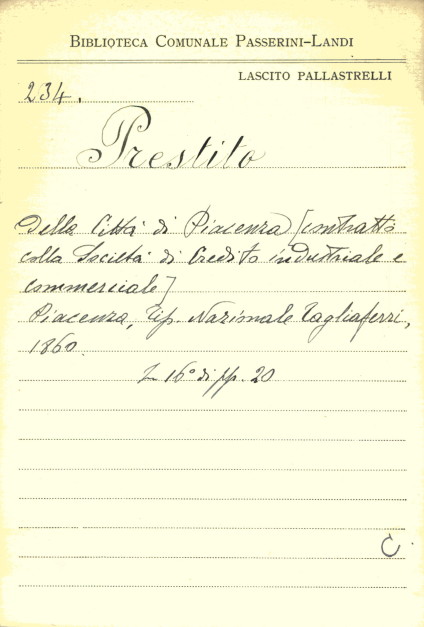 BIBLIOTECA COMUNALE PASSERINI-LANDI
LASCITO PALLASTRELLI
234.
Prestito
Della Città di Piacenza [contratto
colla Società di Credito industriale e
commerciale]
Piacenza, Tip. Nazionale Tagliaferri,
1860.
In 16° di pp. 20
C